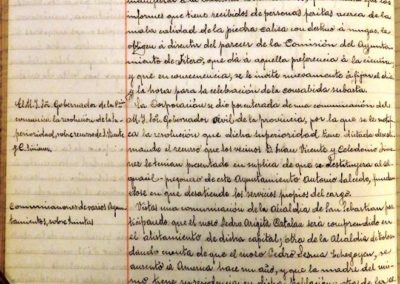 informes que tiene recibidos de personas peritas acerca de la
mala calidad de la piedra caliza con destino á rengas, le
obligan á disentir del parecer de la Comisión del Ayunta-
miento de Fitero, que dá á aquella preferencia á la
y que en consecuencia, se le invite nuevamente á fijar el dia
y la hora para la celebración de la consabida subasta.
El M. I. Sr. Gobernador de la Pcia
comunica la resolución de la Su-
perioridad, sobre recurso de J. Vicente
y C. Jimenez.
La Corporación se dió por enterada de una comunicación del
M. I. Sr. Gobernador civil de la provincia, por la que se noti-
ca la resolución que dicha superioridad tiene dictada desesti-
mando el recurso que los vecinos D. Juan Vicente y Celedonio Jime-
nez le tenian presentado en suplica de que se destituyera al al-
guacil-pregonero de este Ayuntamiento Antonio Salcedo,
dose en que desatiende los servicios propios del cargo.
Comunicaciones de varios Ayun-
tamientos, sobre quintas
Vistas una comunicación de la Alcaldia de San Sebastian par-
ticipando que el mozo Pedro Catalan será comprendido en
el alistamiento de dicha capital; otra de la Alcaldia de
dando cuenta de que el mozo Pedro Jesus se
ausentó á America hace un año, y que la madre del mis-